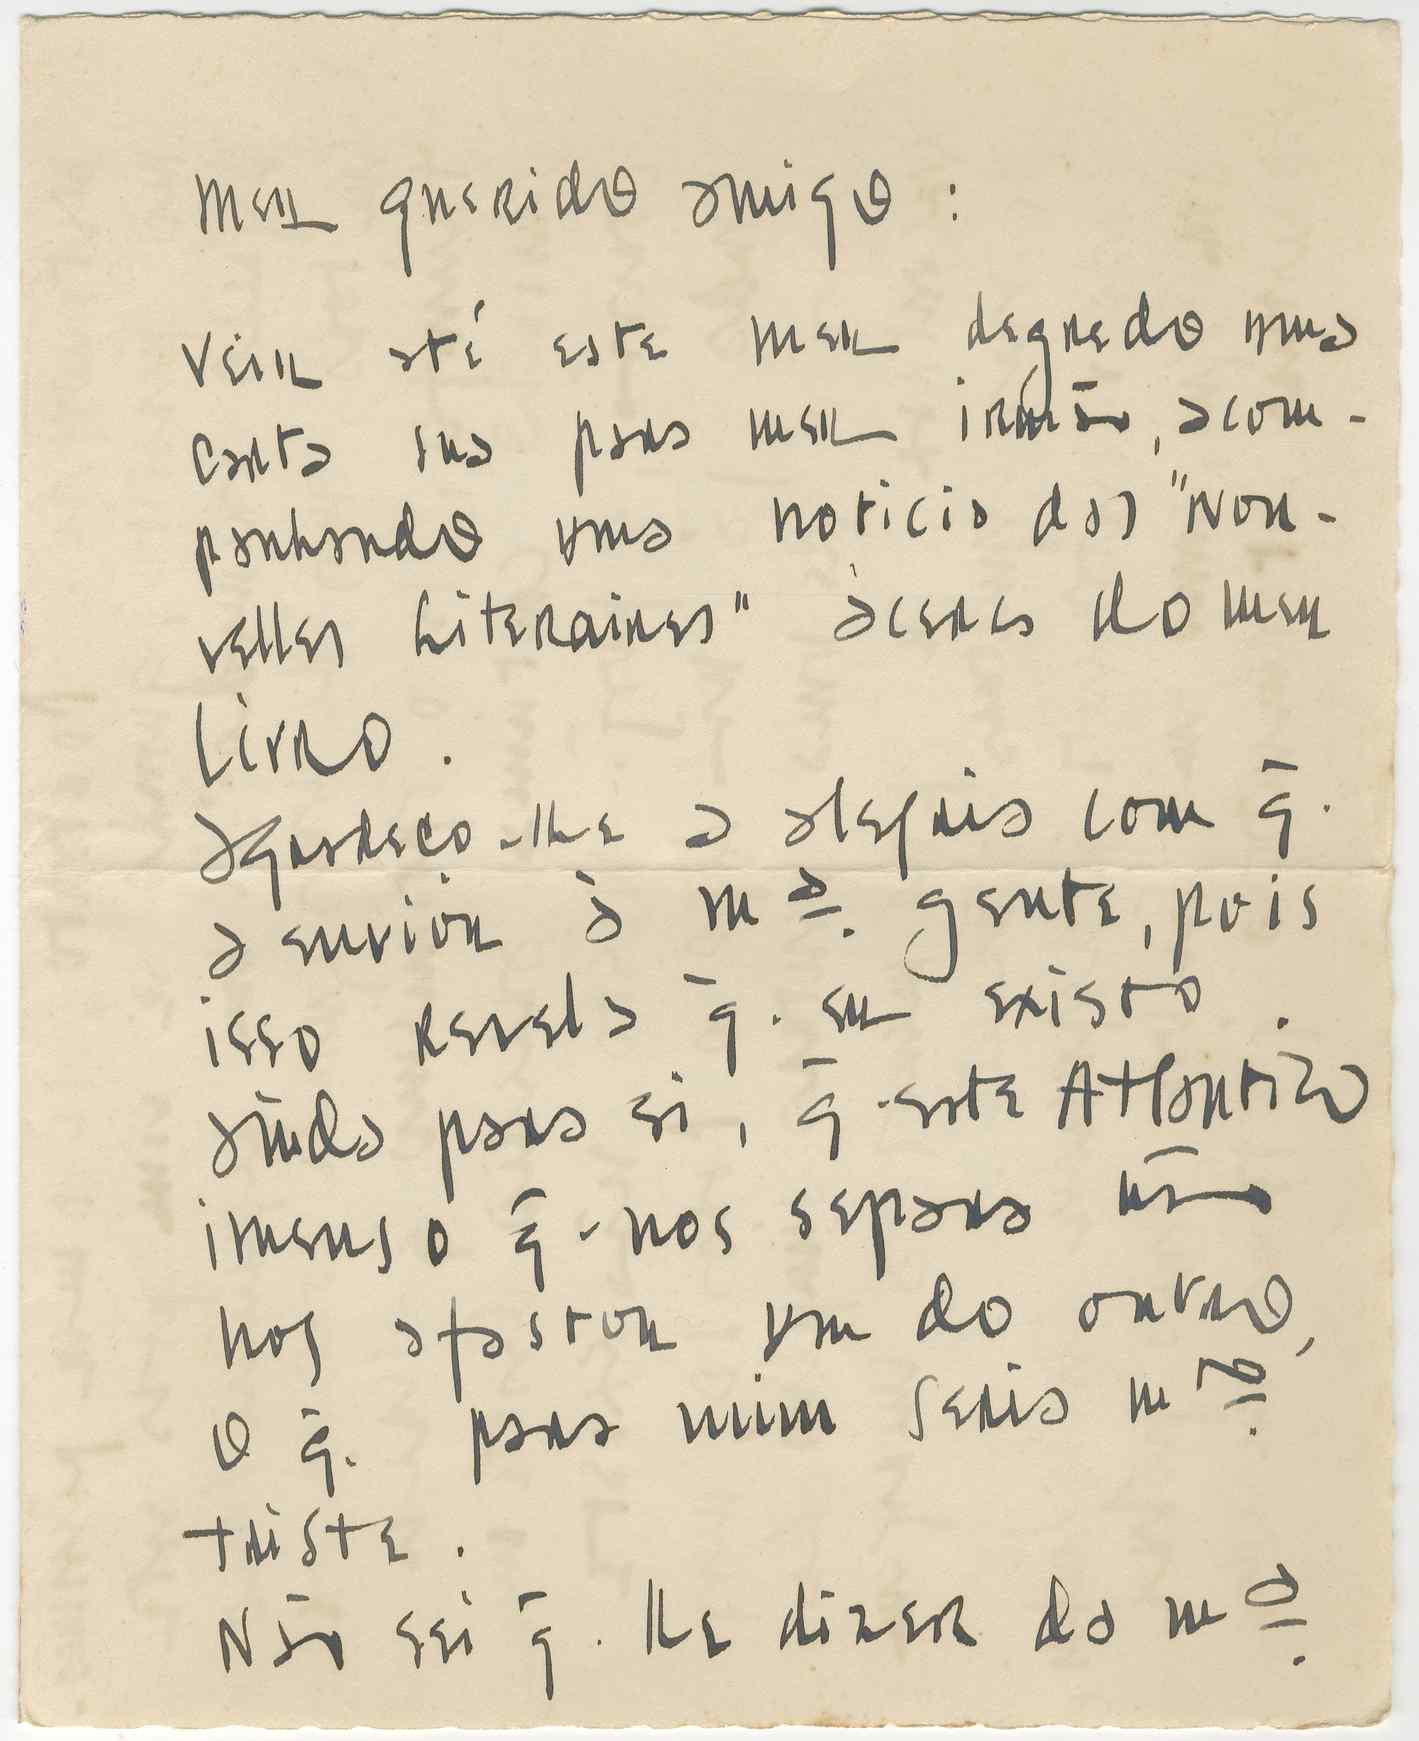 Meu querido amigo :
Veiu até este meu degredo uma
carta sua para meu irmão, acom-
panhando uma noticia das "Nou-
velles Literaires" àcerca do meu
livro .
Agradeço-lhe a alegria com q̄.
a enviou à mª. gente, pois
isso revela q̄. eu existo .
ainda para si, q̄. este Atlantico
imenso q̄. nos separa não
nos afastou um do outro,
o q̄. para mim seria mᵗᵒ.
triste .
Não sei q̄. lhe dizer da mª.